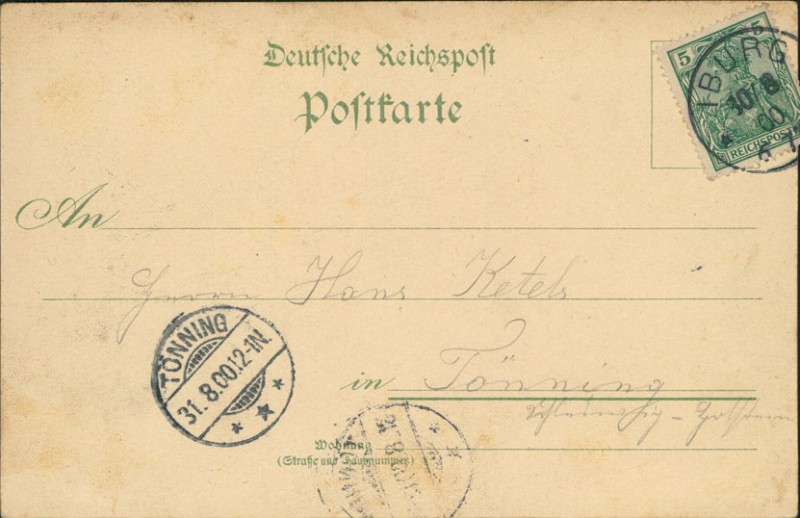 Deutsche Reichspost
Postkarte
5
5
REICHSPOST
IBURG
8
00
An
Herrn Hans Ketels
TÖNNING
31.8.00.12-1N.
in Tönning
Schleswig-Holstein
Wohnung
(Straße und Hausnummer)